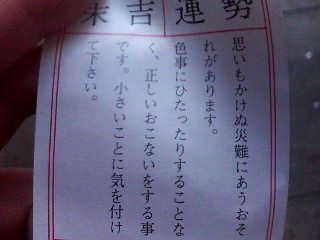 末吉運勢
思いもかけぬ災難にあうおそ
れがあります。
色事にひたったりすることな
く、正しいおこないをする事
です。小さいことに気を付け
て下さい。